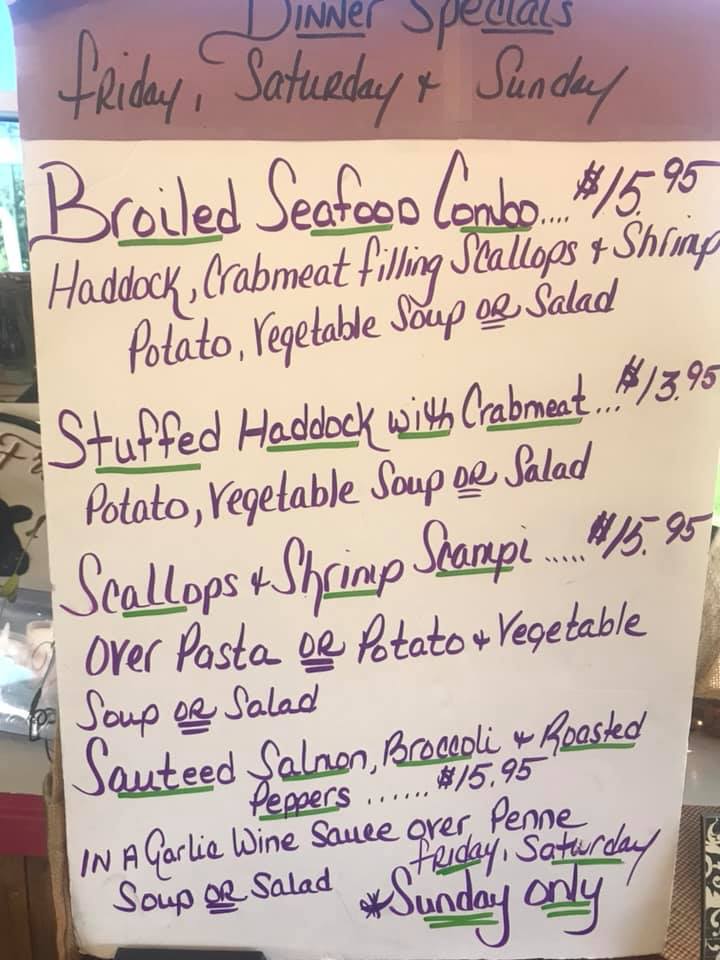 Dinner Specials
Friday, Saturday & Sunday
Broiled Seafood Combo.... $15.95
Haddock, Crabmeat filling Scallops & Shrimp
Potato, Vegetable Soup OR Salad
Stuffed Haddock with Crabmeat... $13.95
Potato, Vegetable Soup OR Salad
Scallops & Shrimp Scampi ..... $15.95
Over Pasta OR Potato & Vegetable
Soup OR Salad
Sauteed Salmon, Broccoli & Roasted
Peppers ...... $15.95
IN A Garlic Wine Sauce over Penne
Friday, Saturday
Soup OR Salad
*Sunday only